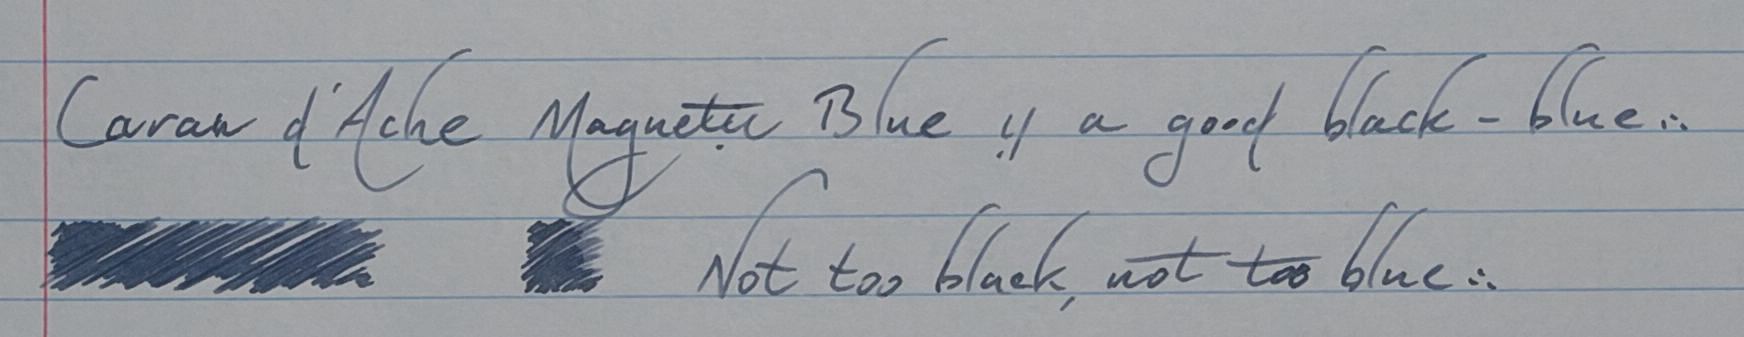 Caran d'Ache Magnetic Blue is a good black-blue∴
Not too black, not too blue∴